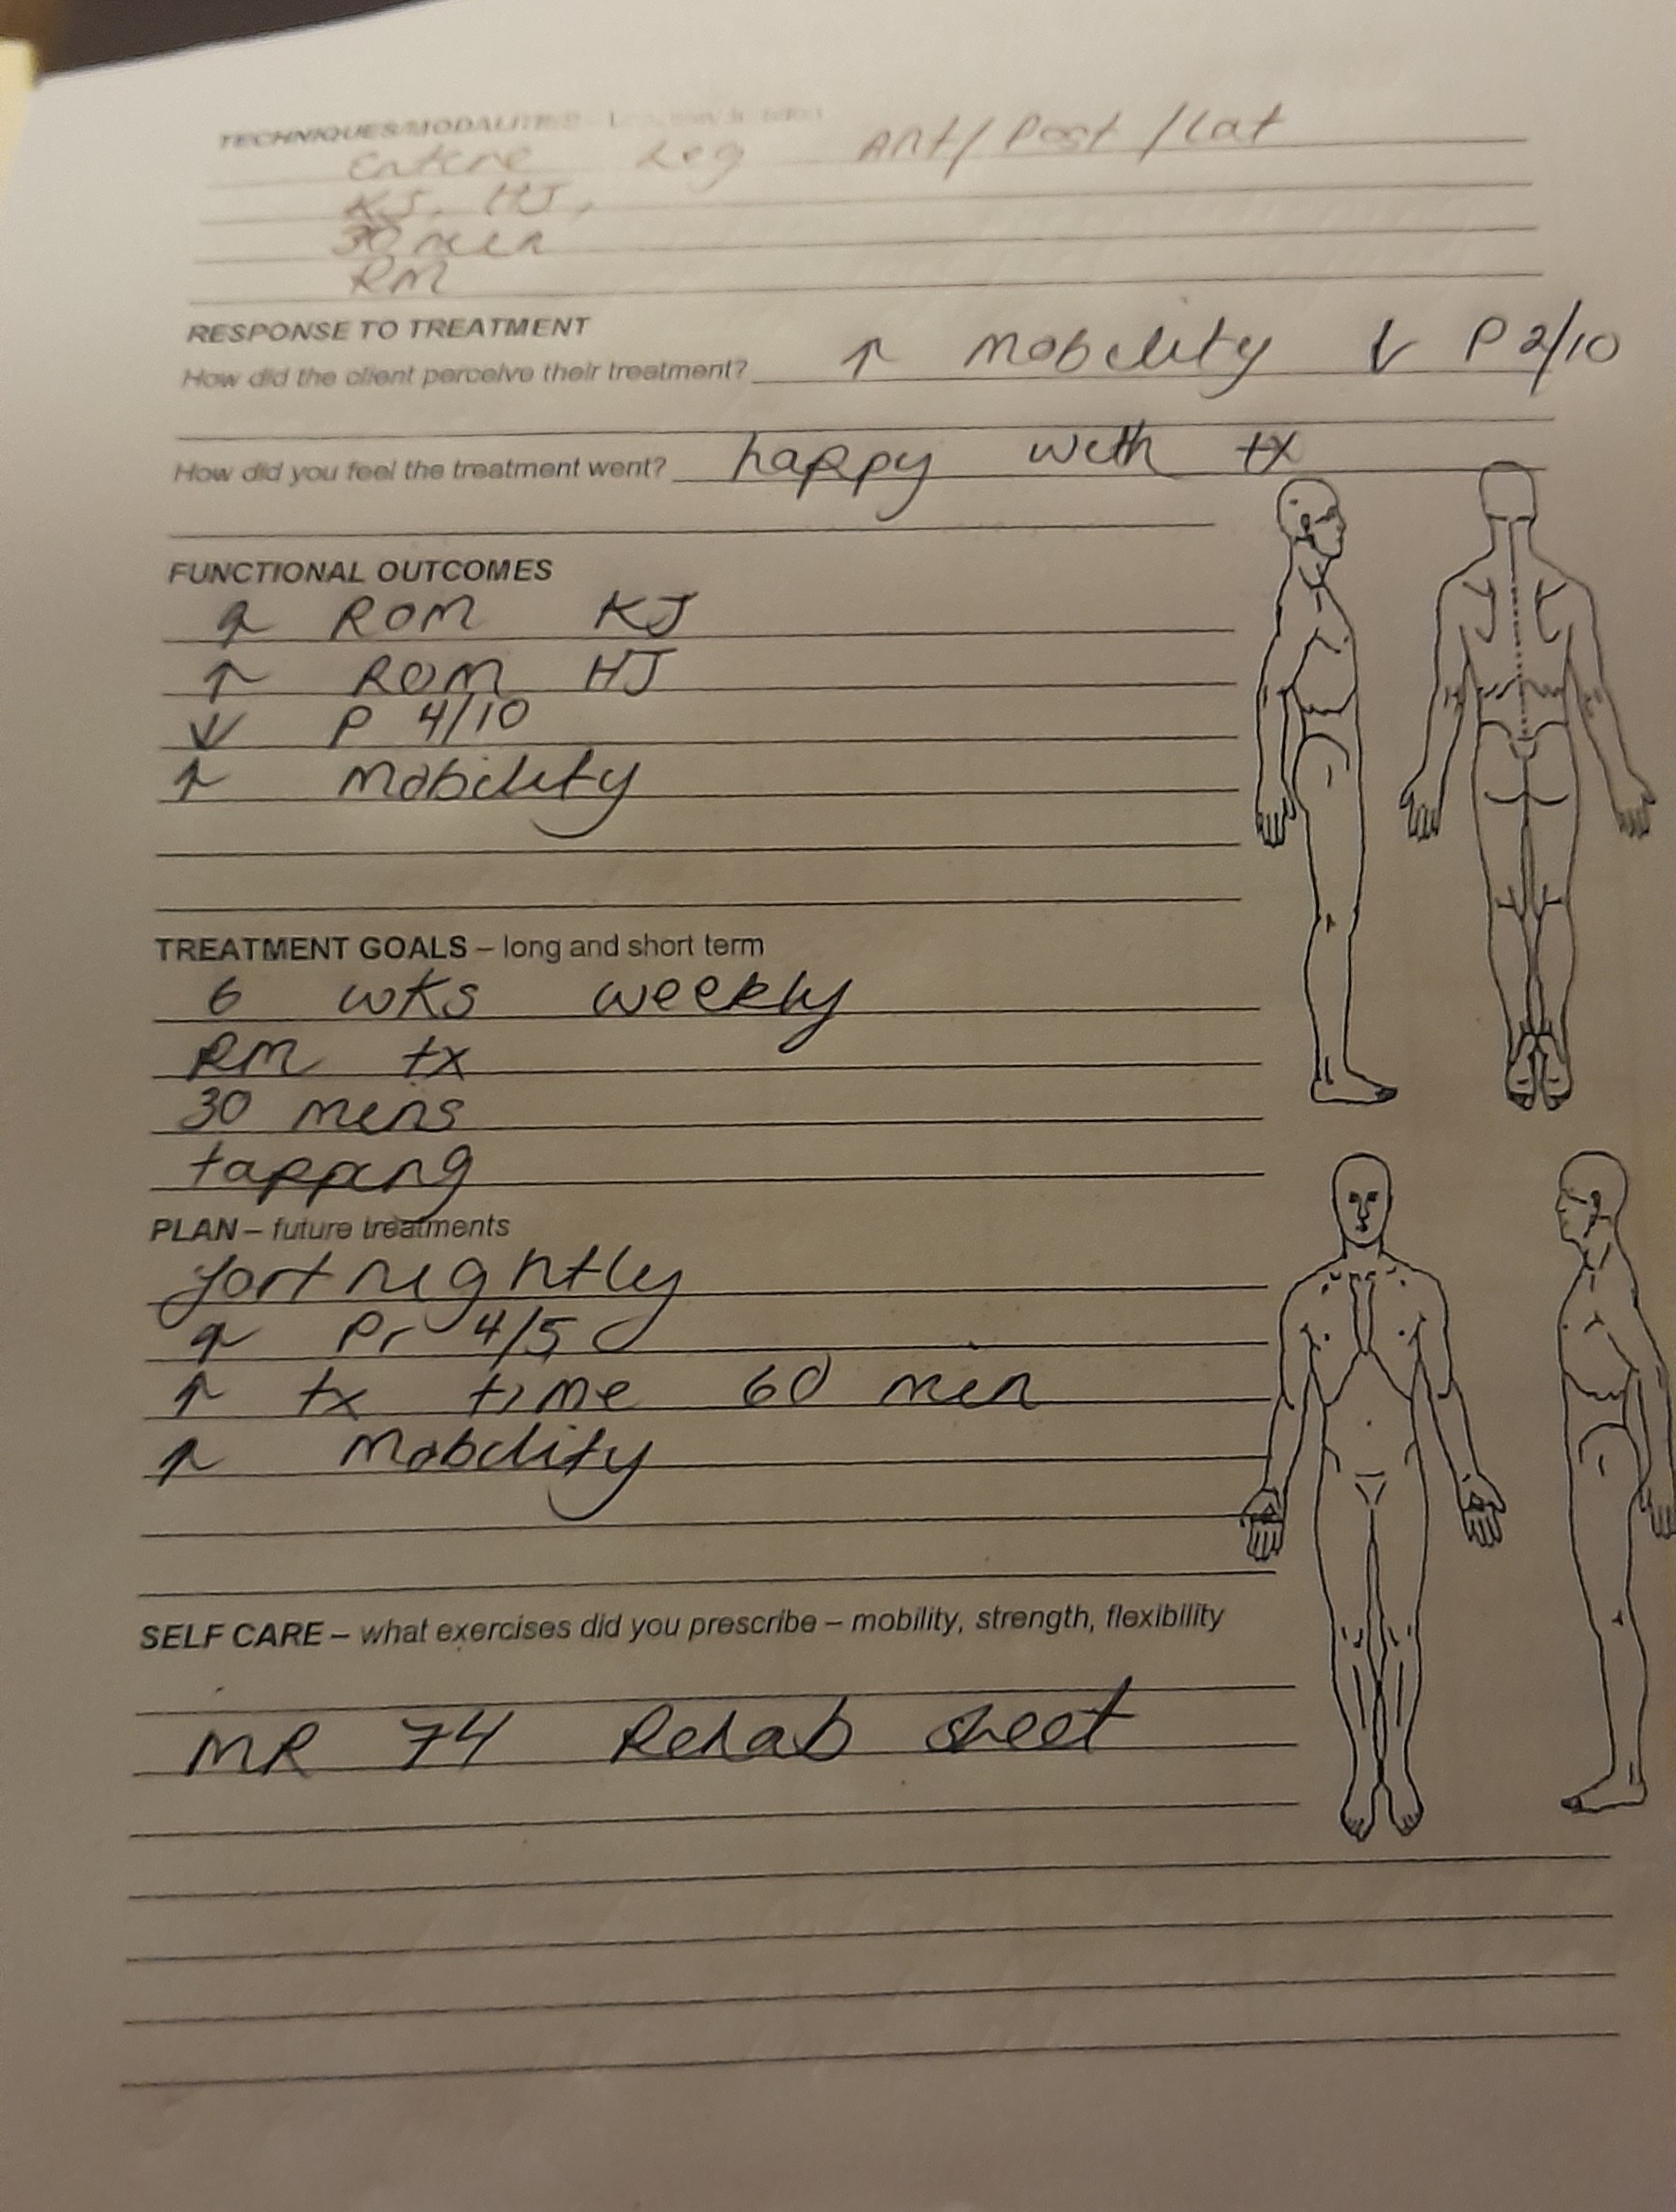 TECHNIQUES/MODALITIES -
Entire Leg Ant/Post/Lat
KJ, HJ,
30 min
RM
RESPONSE TO TREATMENT
How did the client perceive their treatment? ↑ mobility ↓ P 2/10
How did you feel the treatment went? happy with tx
FUNCTIONAL OUTCOMES
↑ ROM KJ
↑ ROM HJ
↓ P 4/10
↑ mobility
TREATMENT GOALS – long and short term
6 wks weekly
RM tx
30 mins
tapping
PLAN – future treatments
fortnightly
↑ Pr 4/5
↑ tx time 60 min
↑ mobility
SELF CARE – what exercises did you prescribe – mobility, strength, flexibility
MR 74 Rehab sheet